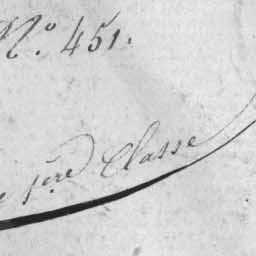 N.º 451.
e 1ère Classe